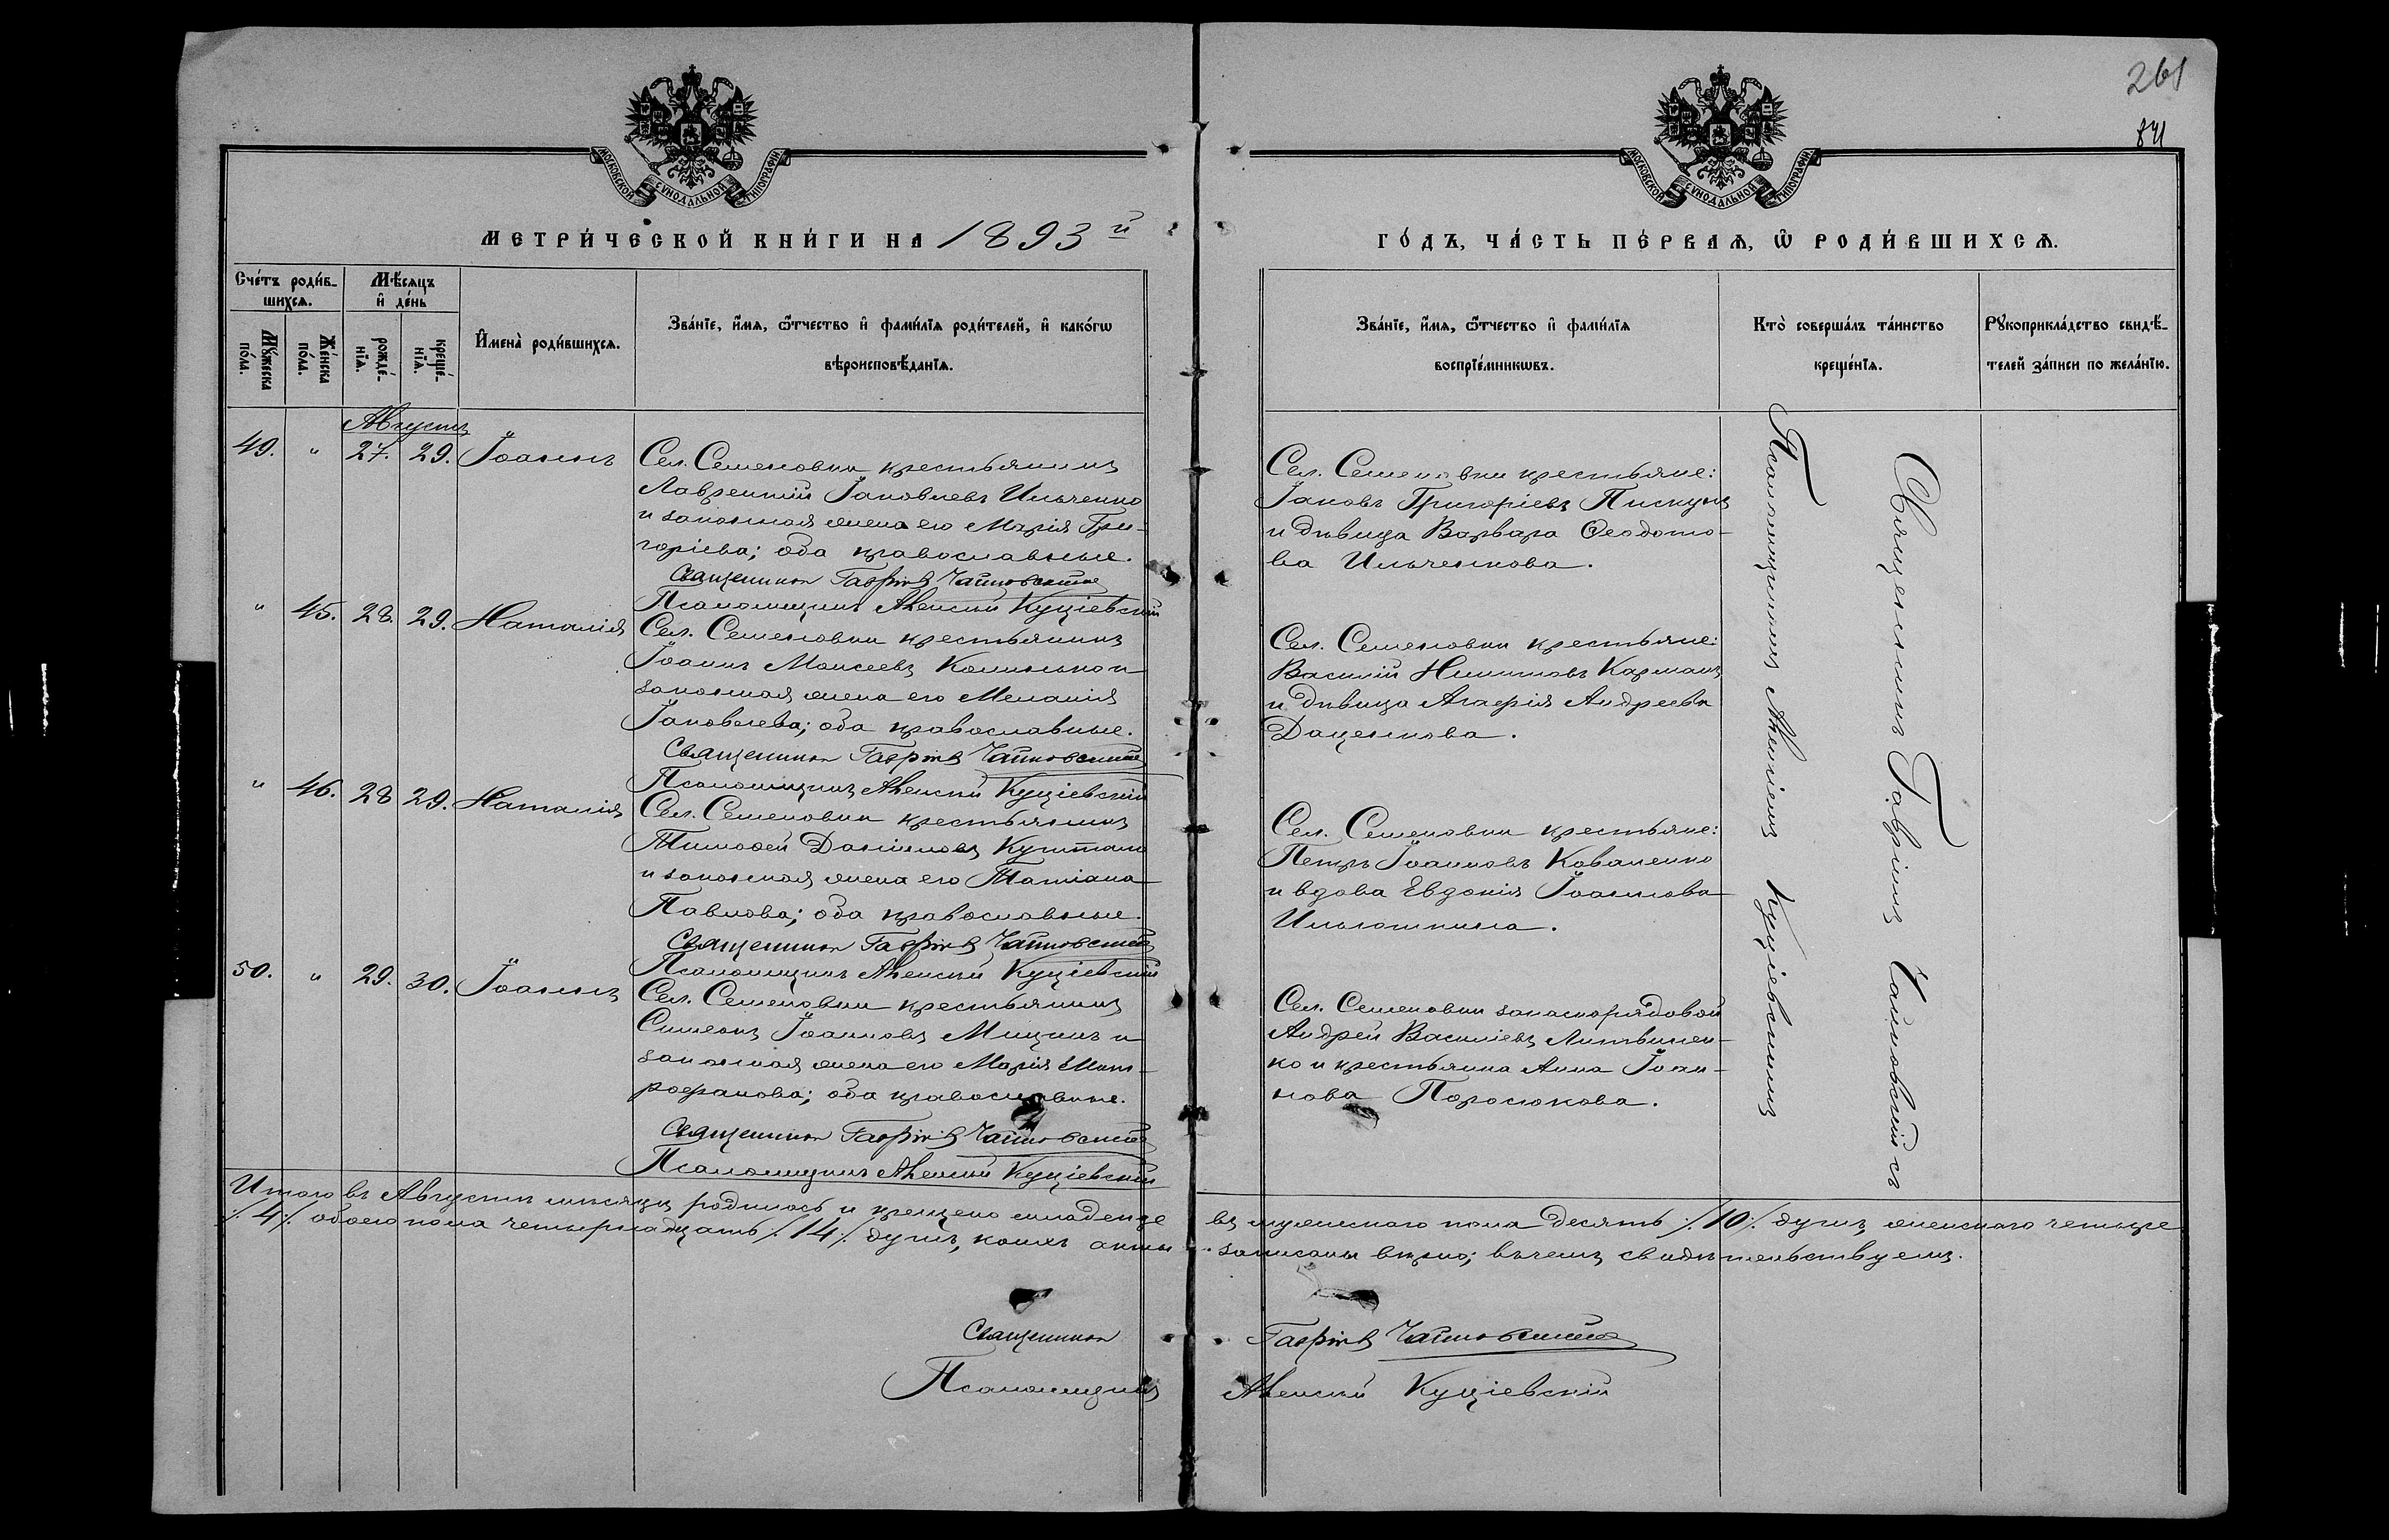 261
841
МОСКОВСКОЙ СѴНОДАЛЬНОЙ ТИПОГРАФІИ
МОСКОВСКОЙ СѴНОДАЛЬНОЙ ТИПОГРАФІИ
МЕТРИ́ЧЕСКОЙ КНИ́ГИ НА 1893 й
ГО́ДЪ, ЧА́СТЬ ПЕ́РВАѦ, Ѡ҆ РОДИ́ВШИХСѦ.
Сче́тъ роди́в-
шихсѧ.
Мѣ́сѧцъ
и҆ де́нь
Мꙋ́жеска
по́ла.
Же́нска
по́ла.
рожде́-
нїѧ.
креще́-
нїѧ.
И҆мена̀ роди́вшихсѧ.
Зва́нїе, и҆́мѧ, ѻ҆́тчество и҆ фами́лїѧ роди́телей, и҆ како́гѡ
вѣроисповѣ́данїѧ.
Зва́нїе, и҆́мѧ, ѻ҆́тчество и҆ фами́лїѧ
воспрїе́мникѡвъ.
Кто̀ соверша́лъ та́инство
креще́нїѧ.
Рꙋкоприкла́дство свидѣ́-
телей за́писи по жела́нїю.
Августъ
49. " 27. 29. Іоаннъ
Сел. Семеновки крестьянинъ
Лаврентій Іаковлевъ Ильченко
и законная жена его Марія Гри-
горіева; оба православные.
Священникъ Гавріилъ Чайковскій
Псаломщикъ Алексій Куціевскій
Сел. Семеновки крестьяне:
Іаковъ Григоріевъ Пискунъ
и дѣвица Варвара Ѳеодото-
ва Ильченкова.
" 45. 28. 29. Наталія
Сел. Семеновки крестьянинъ
Іоаннъ Моисеевъ и
законная жена его Меланія
Іаковлева; оба православные.
Священникъ Гавріилъ Чайковскій
Псаломщикъ Алексій Куціевскій
Сел. Семеновки крестьяне:
Василій Никитовъ Карманъ
и дѣвица Агафія Андреева
Даценкова.
" 46. 28 29. Наталія
Сел. Семеновки крестьянинъ
Тимоѳей Даніиловъ
и законная жена его Татіана
Павлова; оба православные.
Священникъ Гавріилъ Чайковскій
Псаломщикъ Алексій Куціевскій
Сел. Семеновки крестьяне:
Петръ Іоанновъ Коваленко
и вдова Евдокія Іоаннова
50. " 29. 30. Іоаннъ
Сел. Семеновки крестьянинъ
Симеонъ Іоанновъ Мицикъ и
законная жена его Марія Мит-
рофанова; оба православные.
Священникъ Гавріилъ Чайковскій
Псаломщикъ Алексій Куціевскій
Сел. Семеновки запаснорядовой
Андрей Василіевъ Литвинен-
ко и крестьянка Анна Іоан-
нова Поросюкова.
Священникъ Гавріилъ Чайковскій съ
Псаломщикомъ Алексіемъ Куціевскимъ
Итого въ Августѣ мѣсяцѣ родилось и крещено младенце
въ мужескаго пола десять /.10./ душъ, женскаго четыре
/.4./. обоего пола четырнадцать /.14./ душъ, коихъ акты
записаны вѣрно; въ чемъ свидѣтельствуемъ.
Священникъ Гавріилъ Чайковскій
Псаломщикъ Алексій Куціевскій